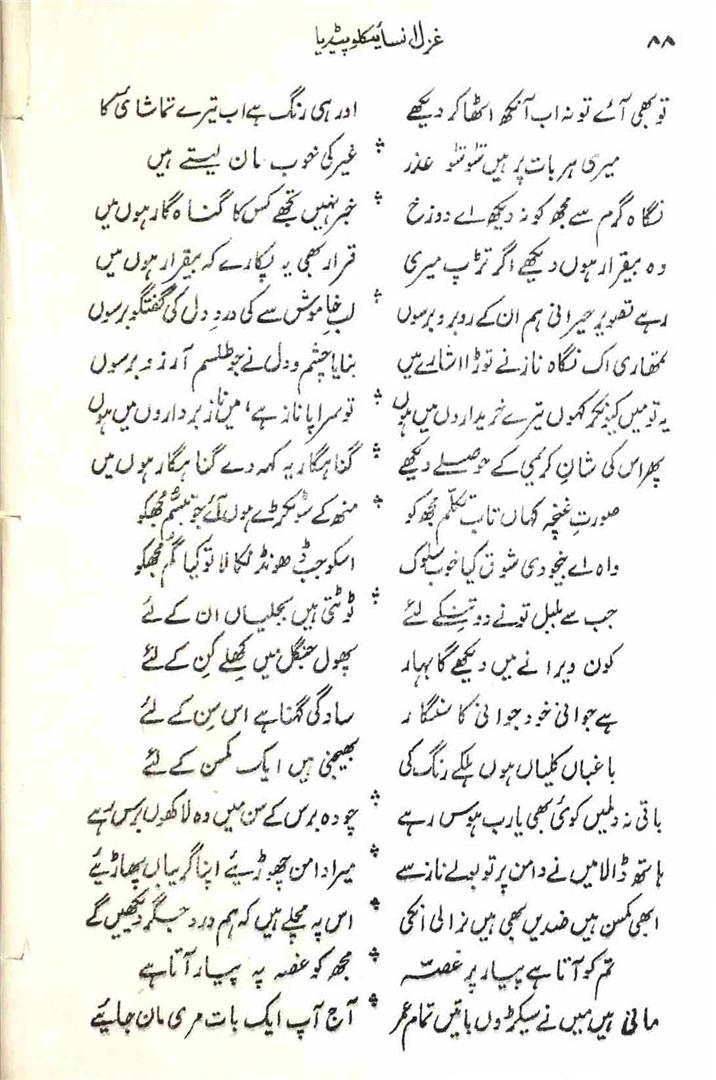 ۸۸ غزل انسائیکلوپیڈیا
تو بھی آئے تو نہ اب آنکھ اٹھا کر دیکھے اور ہی رنگ ہے اب تیرے تماشائی کا
میری ہر بات پر ہیں سو سو عذر غیر کی خوب مان لیتے ہیں
نگاہ گرم سے مجھ کو نہ دیکھ اے دوزخ خبر نہیں تجھے کس کا گناہ گار ہوں میں
وہ بیقرار ہوں دیکھے اگر تڑپ میری قرار بھی یہ پکارے کہ بیقرار ہوں میں
رہے تصویر حیرانی ہم ان کے روبرو برسوں لب خاموش سے کی درد دل کی گفتگو برسوں
تمھاری اک نگاہ ناز نے توڑا اشارے میں بنایا چشم و دل نے جو طلسم آرزو برسوں
یہ تو میں کیونکر کہوں تیرے خریداروں میں ہوں تو سراپا ناز ہے، میں ناز برداروں میں ہوں
پھر اس کی شان کریمی کے حوصلے دیکھے گناہگار یہ کہہ دے گناہگار ہوں میں
صورتِ غنچہ کہاں تاب تکلم مجھ کو منھ کے سو ٹکڑے ہوں آئے جو تبسم مجھکو
واہ اے بیخودی شوق کیا خوب سلوک اسکو جب ڈھونڈ نکالا تو کیا گم مجھکو
جب سے بلبل تو نے دو تنکے لئے ٹوٹتی ہیں بجلیاں ان کے لئے
کون ویرانے میں دیکھے گا بہار پھول جنگل میں کھلے کن کے لئے
ہے جوانی خود جوانی کا سنگار سادگی گہنا ہے اس سن کے لئے
باغباں کلیاں ہوں ہلکے رنگ کی بھیجنی ہیں ایک کمسن کے لئے
باقی نہ دلمیں کوئی بھی یارب ہوس رہے چودہ برس کے سن میں وہ لاکھوں برس رہے
ہاتھ ڈالا میں نے دامن پر تو بولے ناز سے میرا دامن چھوڑیئے اپنا گریباں پھاڑیئے
ابھی کمسن ہیں ضدیں بھی ہیں نرالی انکی اس پہ مچلے ہیں کہ ہم درد جگر دیکھیں گے
تم کو آتا ہے پیار پر غصّہ مجھ کو غصہ پہ پیار آتا ہے
مانی ہیں میں نے سیکڑوں باتیں تمام عمر آج آپ ایک بات مری مان جائیے